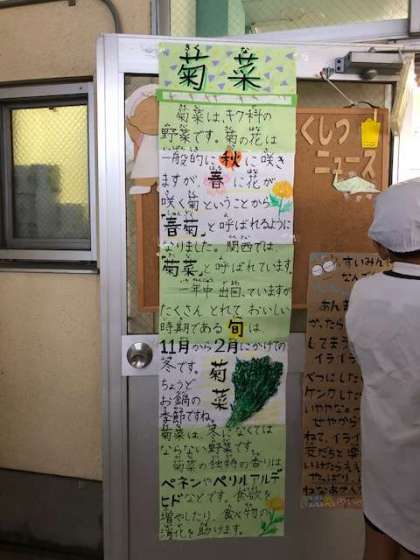 菊菜
菊菜は、キク科の
野菜です。菊の花は
一般的に秋に咲き
ますが、春に花が
咲く菊ということから
"春菊"と呼ばれるように
なりました。関西では
"菊菜"と呼ばれています。
一年中出回っていますが
たくさんとれておいしい
時期である旬は
11月から2月にかけての
冬です。
ちょうど
お鍋の
季節ですね。
菊菜
菊菜は、冬になくては
ならない野菜です。
菊菜の独特の香りは
ペネンやペリルアルデ
ヒドなどです。食欲を
増やしたり、食べ物の
消化を助けます。
くしつ
ニュース
すいみん
なん
あん
かたら
してま
イライラ
べつにした
ケンカした
いややな
せやから
ねて、イライ